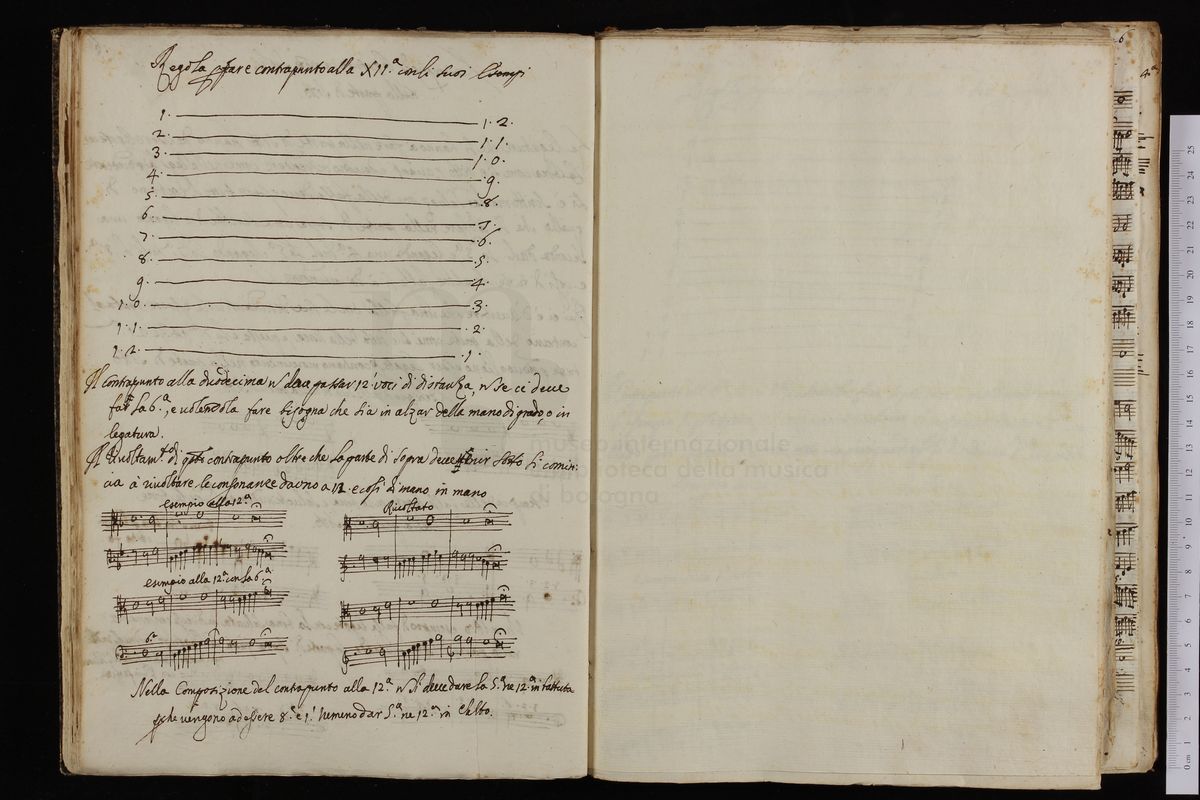 Regola p fare contrapunto alla XII.ª con li suoi Esempi
1. 1.2.
2. 1.1.
3. 1.0.
4. 9.
5. 8.
6. 7.
7. 6.
8. 5.
9. 4.
1.0. 3.
1.1. 2.
1.2. .1.
Il contrapunto alla duodecima n deve passar 12 voci di distanza, n se ci deve
far la 6ª, e volendola fare bisogna che sia in alzar della mano di grado, o in
legatura.
Il rivoltamto di qsto contrapunto oltre che la parte di sopra deve venir sotto si comin:
cia a rivoltare le consonanze da uno a 12 e così di mano in mano
esempio alla 12ª
Rivoltato
esempio alla 12ª con la 6ª
6ª
Nella Composizione del contrapunto alla 12ª n si deve dare la 5ª ne 12ª in battuta
pche vengono ad essere 8.e e 1.i nemeno dar 5ª ne 12ª in
museo internazionale
biblioteca della musica
di bologna
6
4ª
0 cm 1 2 3 4 5 6 7 8 9 10 11 12 13 14 15 16 17 18 19 20 21 22 23 24 25